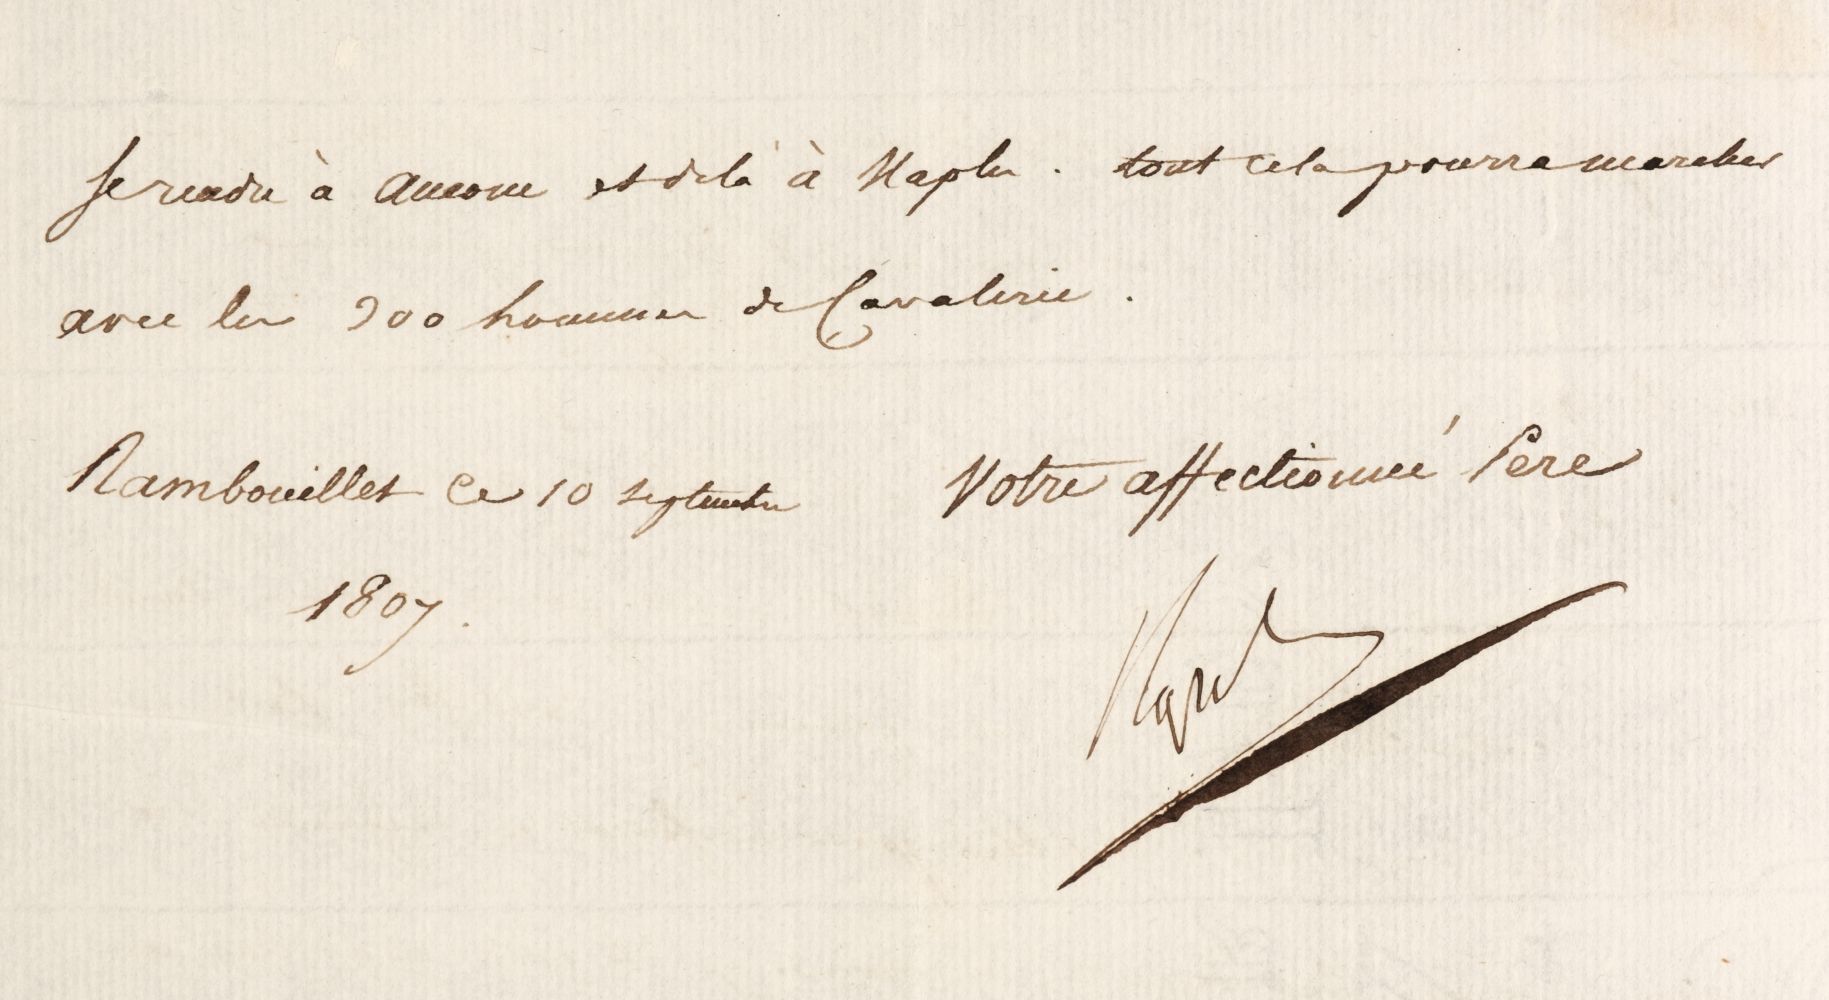 se rendre à Ancone et delà à Naples. tout cela pourra marcher
avec les 900 hommes de Cavalerie.
Rambouillet ce 10 septembre
Votre affectionné Père
1807.
Napol